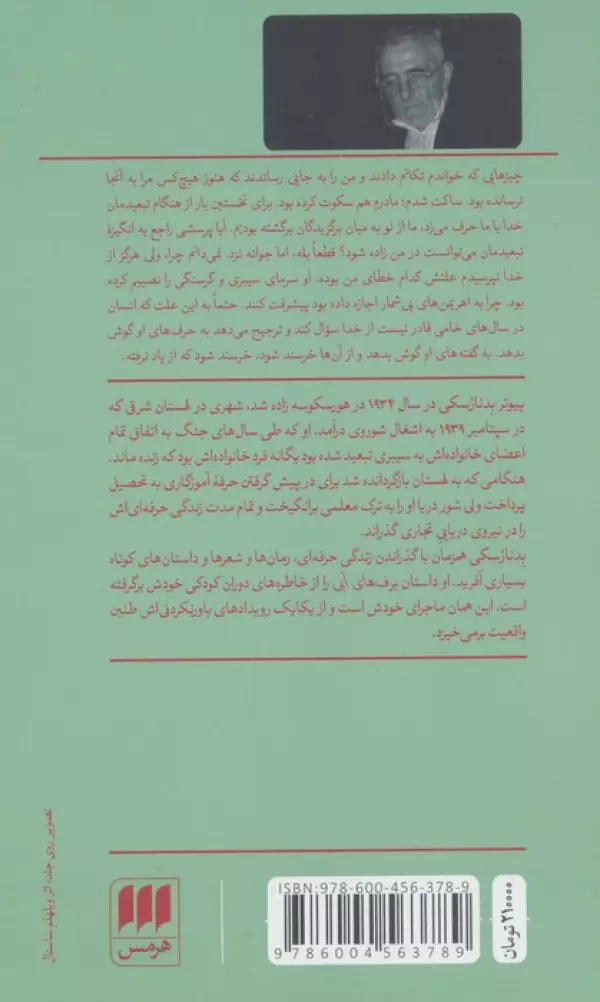 چیزهایی که خواندم تکانم دادند و من را به جایی رساندند که هنوز هیچ‌کس مرا به آنجا
نرسانده بود. ساکت شدم؛ مادرم هم سکوت کرده بود. برای نخستین بار از هنگام تبعیدمان
خدا با ما حرف می‌زد، ما از نو به میان برگزیدگان برگشته بودیم. آیا پرسشی راجع به انگیزهٔ
تبعیدمان می‌توانست در من زاده شود؟ قطعاً بله، اما جوانه نزد. نمی‌دانم چرا، ولی هرگز از
خدا نپرسیدم علتش کدام خطای من بوده. او سرمای سیبری و گرسنگی را نصیبم کرده
بود. چرا به اهریمن‌های بی‌شمار اجازه داده بود پیشرفت کنند. حتماً به این علت که انسان
در سال‌های خامی قادر نیست از خدا سؤال کند و ترجیح می‌دهد به حرف‌های او گوش
بدهد. به گفته‌های او گوش بدهد و از آن‌ها خرسند شود، خرسند شود که از یاد نرفته.
پیوتر بدنارْسکی در سال ۱۹۳۴ در هورسکوسه زاده شد، شهری در لهستان شرقی که
در سپتامبر ۱۹۳۹ به اشغال شوروی درآمد. او که طی سال‌های جنگ به اتفاق تمام
اعضای خانواده‌اش به سیبری تبعید شده بود یگانه فرد خانواده‌اش بود که زنده ماند.
هنگامی که به لهستان بازگردانده شد برای در پیش گرفتن حرفهٔ آموزگاری به تحصیل
پرداخت ولی شور دریا او را به ترک معلمی برانگیخت و تمام مدت زندگی حرفه‌ای‌اش
را در نیروی دریایی تجاری گذراند.
بدنارْسکی همزمان با گذراندن زندگی حرفه‌ای، رمان‌ها و شعرها و داستان‌های کوتاه
بسیاری آفرید. او داستان برف‌های آبی را از خاطره‌های دوران کودکی خودش برگرفته
است. این همان ماجرای خودش است و از یکایک رویدادهای باورنکردنی‌اش طنین
واقعیت برمی‌خیزد.
تصویر روی جلد: اثر ویلهلم
هرمس
ISBN: 978-600-456-378-9
9 786004 563789
۲۱۰۰۰۰ تومان